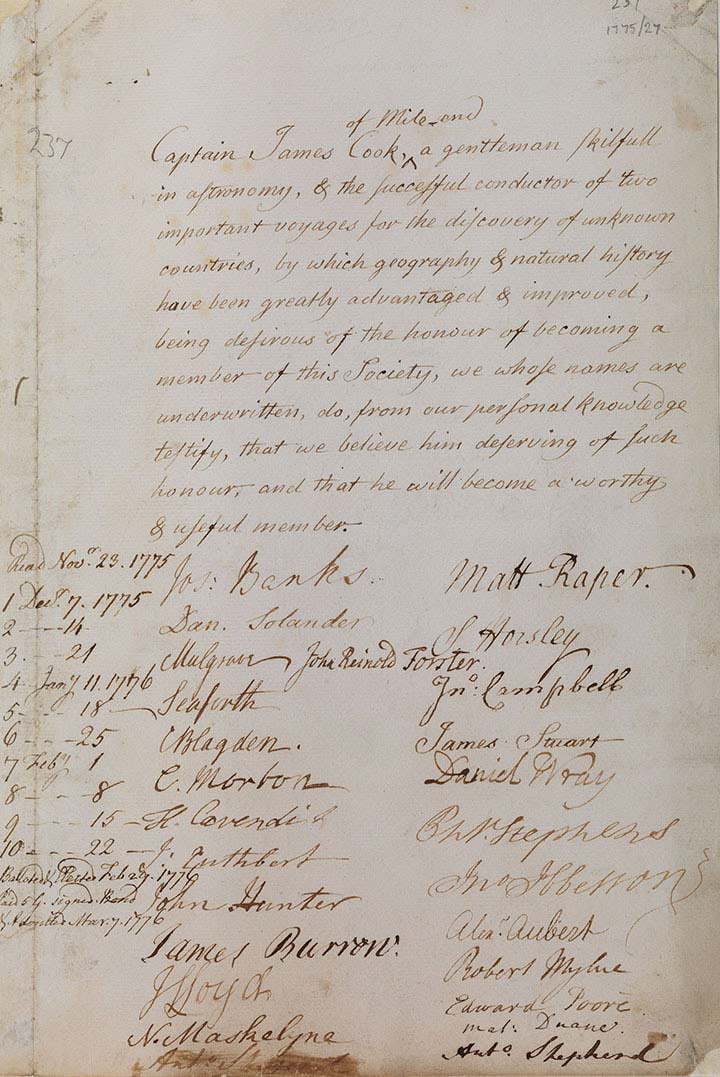 237
1775/27
237
of Mile-end
Captain James Cook, ^ a gentleman skilfull
in aſtronomy, & the ſucceſsful conductor of two
important voyages for the diſcovery of unknown
countries, by which geography & natural hiſtory
have been greatly advantaged & improved,
being deſirous of the honour of becoming a
member of this Society, we whoſe names are
underwritten, do, from our perſonal knowledge
teſtify, that we believe him deſerving of ſuch
honour, and that he will become a worthy
& uſeful member.
Read Novr. 23. 1775
1 Decr. 7. 1775
2 - - 14
3. - 21
4 - Jany 11. 1776
5 - - - 18
6 - - - 25
7 Feby 1
8 - - - 8
9 - - - 15
10 - - - 22
Balloted & Elected Feb 29. 1776
Paid 5 G. signed Bond
& Admitted Mar. 7. 1776
Jos: Banks
Dan. Solander
Mulgrave
John Reinold Forster.
Seaforth
CBlagden.
C. Morton
H. Cavendish
J. Cuthbert
John Hunter
James Burrow.
J Lloyd
N. Maskelyne
Anto. Shepherd
Matt. Raper.
S Horsley
Jno: Campbell
James Stuart
Daniel Wray
Phi. Stephens
Jno Ibbetson
Alexr. Aubert
Robert Mylne
Edward Poore
Mat: Duane.
Anto. Shepherd